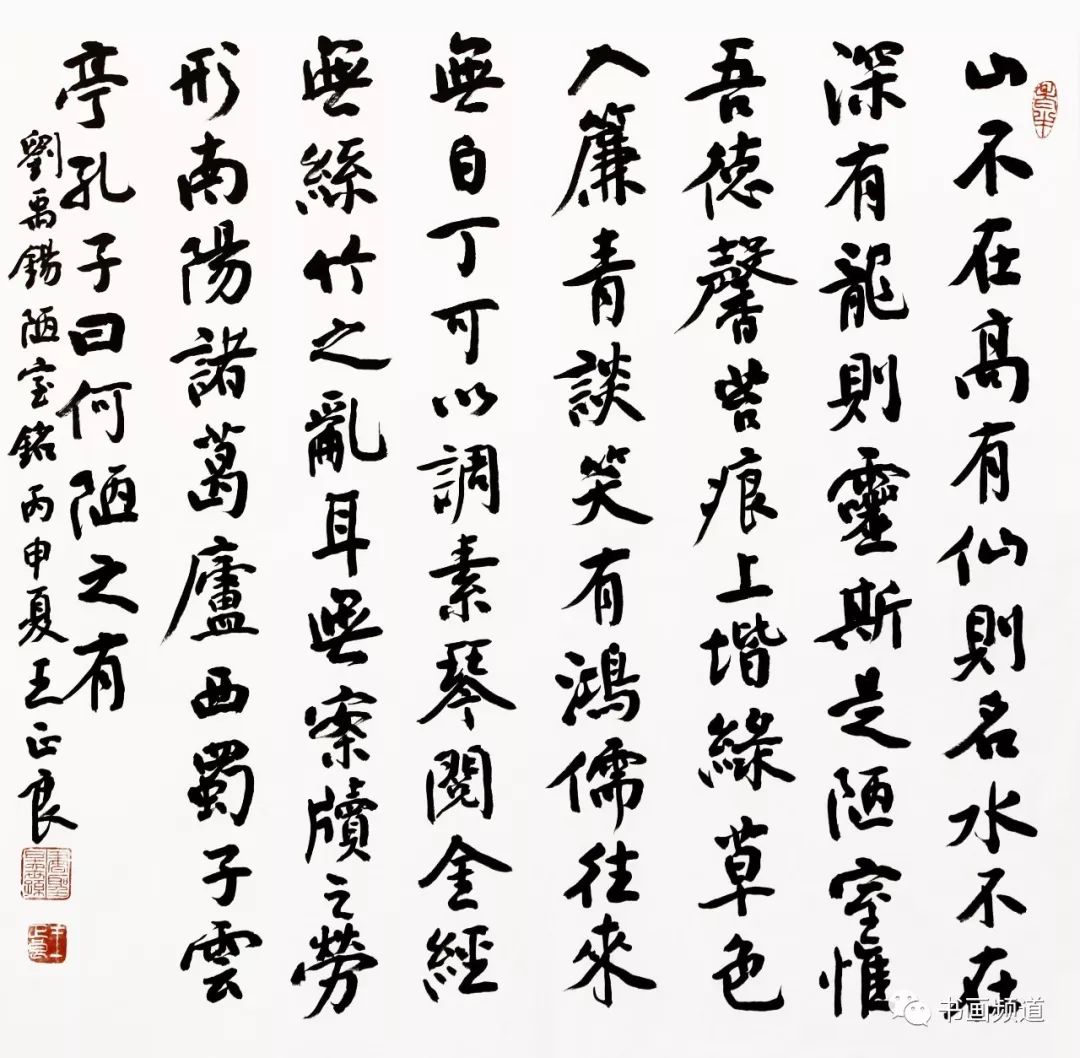 山不在高有仙則名水不在
深有龍則靈斯是陋室惟
吾德馨苔痕上堦綠草色
入簾青談笑有鴻儒往來
無白丁可以調素琴閱金經
無絲竹之亂耳無案牘之勞
形南陽諸葛廬西蜀子雲
亭孔子曰何陋之有
劉禹錫陋室銘丙申夏王正良
书画频道